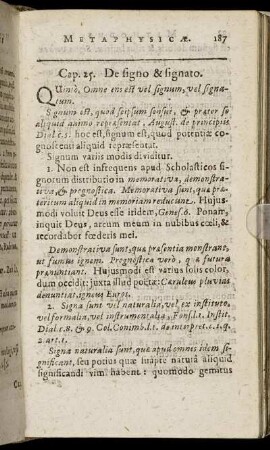 METAPHYSICÆ. 187
Cap. 25. De signo & signato.
Quintò, Omne ens est vel signum, vel signa-
tum.
Signum est, quod seipsum sensui, & præter se
aliquid animo repræsentat, August. de principiis
Dial c. 5. hoc est, signum est, quod potentiæ cog-
noscenti aliquid repræsentat.
Signum variis modis dividitur.
1 Non est infrequens apud Scholasticos sig-
norum distributio in memorativa, demonstra-
tiva, & prognostica. Memorativa sunt, quæ præ-
teritum aliquid in memoriam reducunt. Hujus-
modi voluit Deus esse iridem, Genes. 6. Ponam,
inquit Deus, arcum meum in nubibus cœli, &
recordabor fœderis mei.
Demonstrativa sunt, quæ præsentia monstrant,
ut fumus ignem. Prognostica verò, quæ futura
prænuntiant. Hujusmodi est varius solis color,
dum occidit; juxta illud poëtæ: Cæruleus pluvias
denuntiat, igneus Euros.
2. Signa sunt vel naturalia, vel ex instituto,
vel formalia, vel instrumentalia, Fons. l. 1. Instit.
Dial. c. 8. & 9. Col. Conimb. l. 1. de interpret. c. 1. q.
2 art. 1.
Signa naturalia sunt, quæ apud omnes idem si-
gnificant, seu potius quæ suapte natura aliquid
significandi vim habent: quomodo gemitus